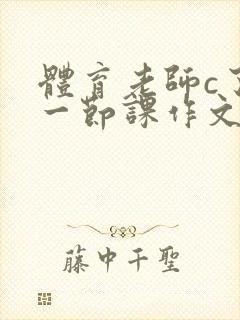 體育老師c了
一節課作文
藤中千聖